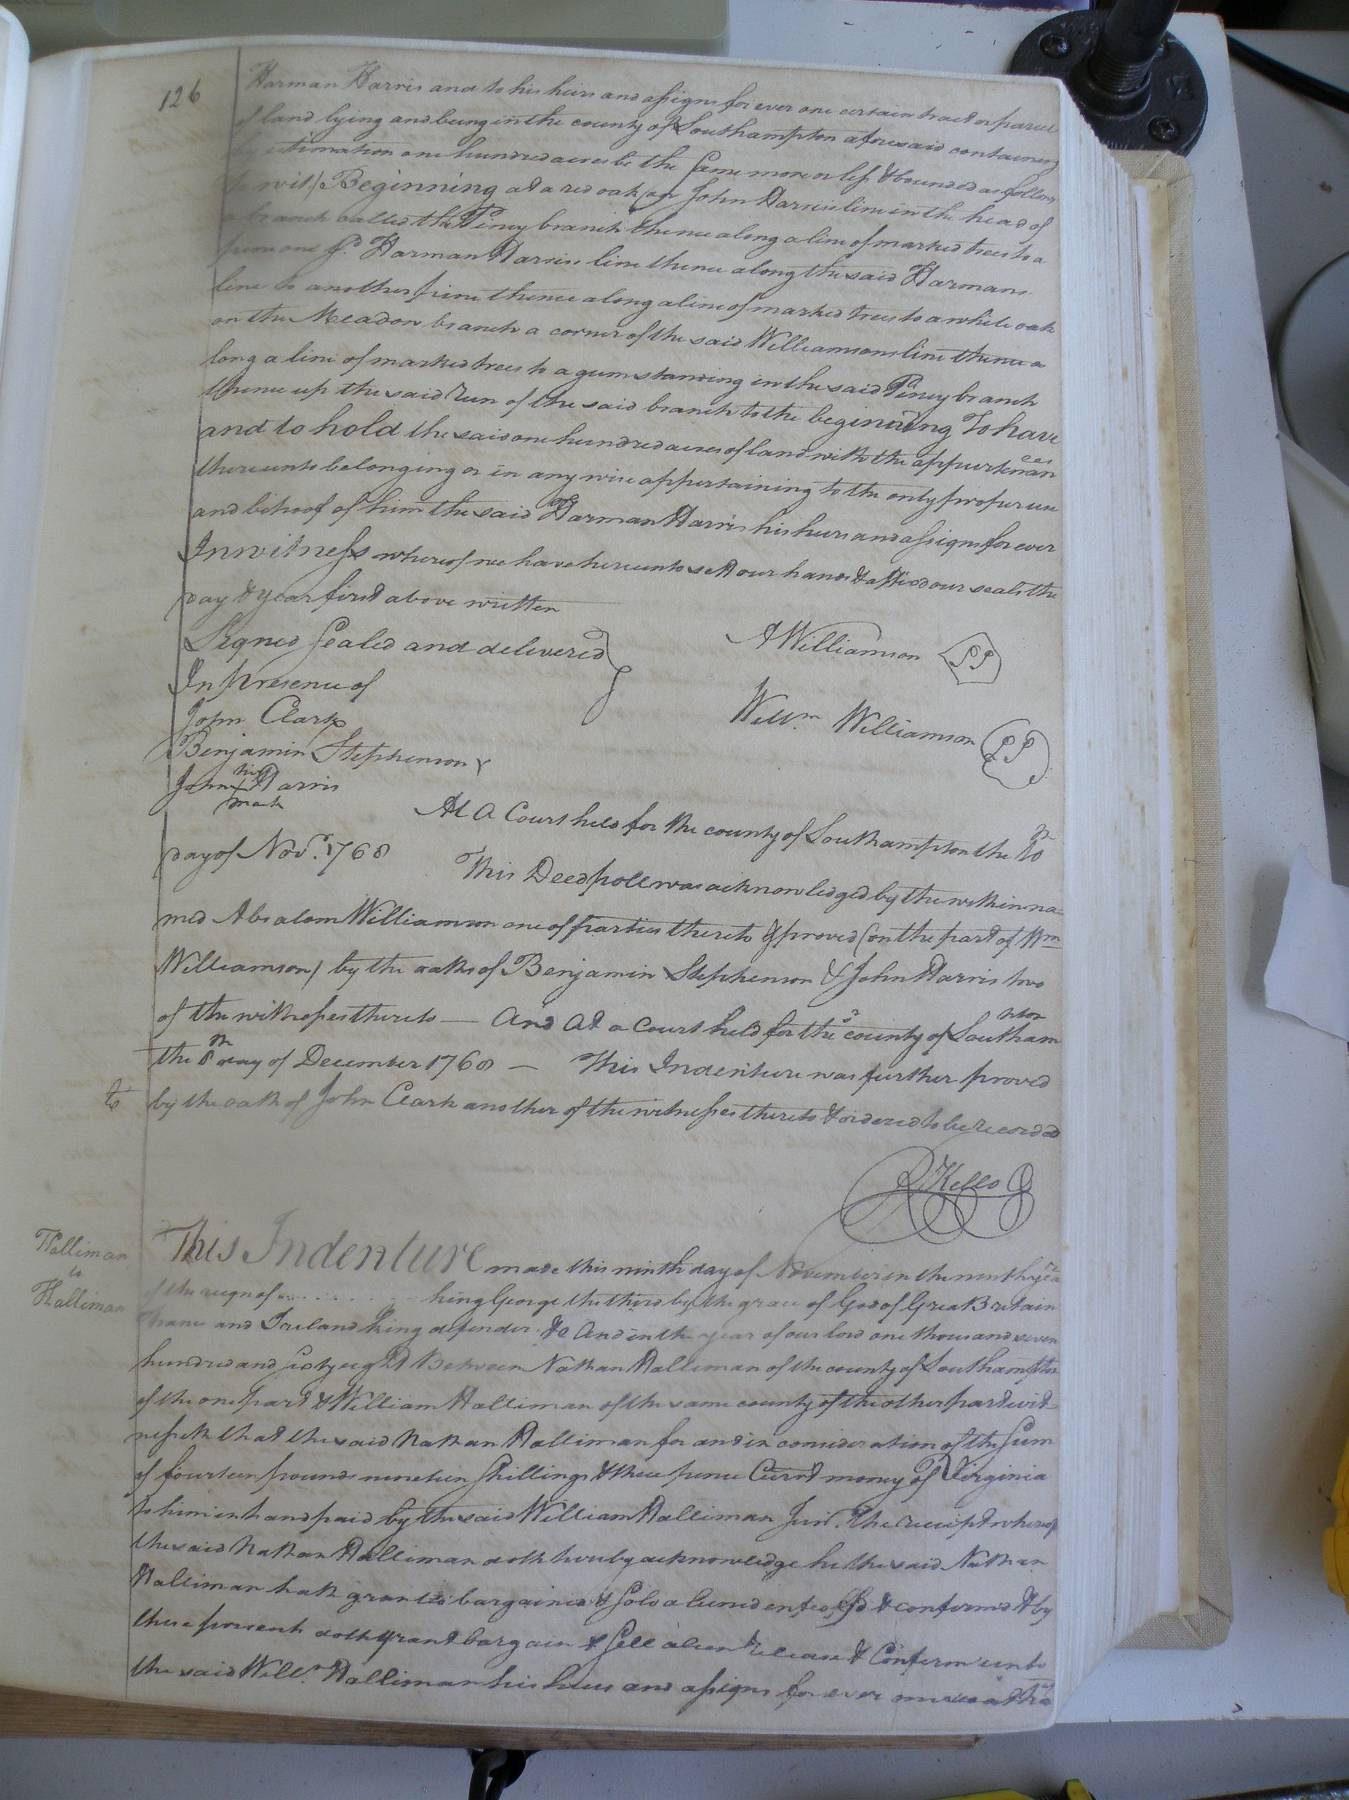 126
Harman Harris and to his heirs and assigns for ever one certain tract or parcel
of land lying and being in the county of Southampton aforesaid containing
by estimation one hundred acres be the same more or less & bounded as follows
to wit / Beginning at a red oak on John Harris's line in the head of
a branch called the Piney branch thence along a line of marked trees to a
pine one sd. Harman Harris's line thence along the said Harmans
line to another pine thence along a line of marked trees to a white oak
on the Meadow branch a corner of the said Williamsons line thence a
long a line of marked trees to a gum standing in the said Piney branch
thence up the said Run of the said branch to the begining To have
and to hold the said one hundred acres of land with the appurtenances
thereunto belonging or in any wise appertaining to the only proper use
and behoof of him the said Harman Harris his heirs and assigns for ever
In witness whereof we have hereunto set our hands & affixed our seals the
day & year first above written
Signed Sealed and delivered
In presence of
John Clark
Benjamin Stephenson
John his mark Harris
A Williamson
Willm. Williamson
At A Court held for the county of Southampton the 10th
day of Novr. 1768
This Deed poll was acknowledged by the within na-
med Absalom Williamson one of parties thereto & proved (on the part of Wm
Williamson) by the oaths of Benjamin Stephenson & John Harris two
of the witnesses thereto — And At a Court held for the county of Southampton
the 8th day of December 1768 — This Indenture was further proved
by the oath of John Clark another of the witnesses thereto & ordered to be recorded
R Kello
Halliman
to
Halliman
This Indenture made this ninth day of November in the ninth year
of the reign of . . . . . . . . king George the third by the grace of God of Great Britain
France and Ireland King defender &c And in the year of our lord one thousand seven
hundred and sixty eight Between Nathan Halliman of the county of Southampton
of the one part & William Halliman of the same county of the other part wit-
nesseth that the said Nathan Halliman for and in consideration of the Sum
of fourteen pounds nineteen Shillings & three pence Currt money of Virginia
to him in hand paid by the said William Halliman Junr. The receipt whereof
the said Nathan Halliman doth hereby acknowledge he the said Nathan
Halliman hath granted bargained & Sold aliened enfeoffed & confirmed & by
these presents doth grant bargain & Sell alien release & Confirm unto
the said Willm. Halliman his heirs and assigns for ever